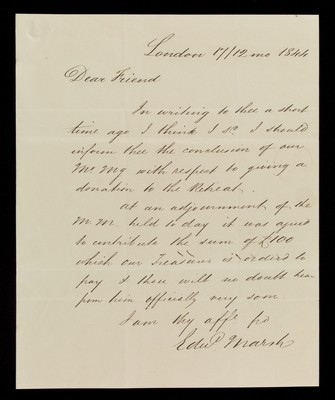 London 17/12 mo 1844
Dear Friend
In writing to thee a short
time ago I think I sd. I should
inform thee the conclusion of our
Mo. Mg with respect to giving a
donation to the Retreat.
At an adjournment of the
M. M. held to day it was agreed
to contribute the sum of £100
which our Treasurer is ordered to
pay & thou wilt no doubt hear
from him officially very soon
I am thy affte. fd
Edwd. Marsh